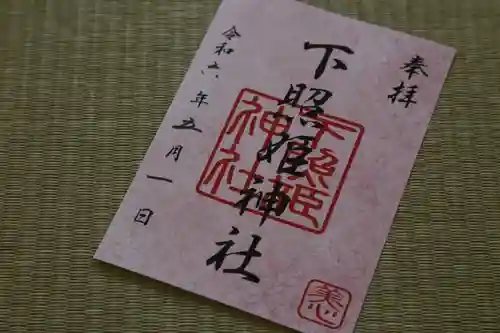 奉拝
下照姫神社
下照姫
神社
令和六年五月一日